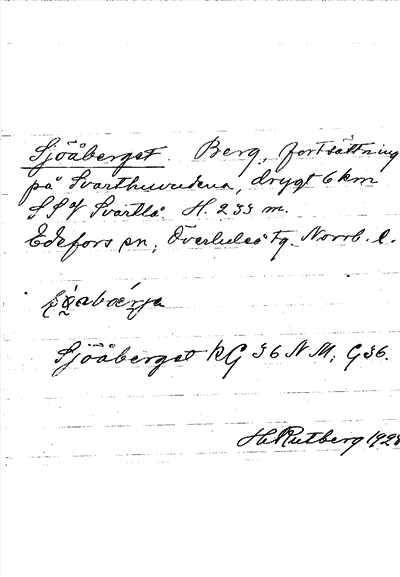 Sjöåberget. Berg, fortsättning
på Svarthuvudena, drygt 6 km
SSV Svartlå. H. 233 m.
Edefors sn, Överluleå tg. Norrb. l.
Sjöåberget RG 36 NM; G36.
H. Rutberg 1928